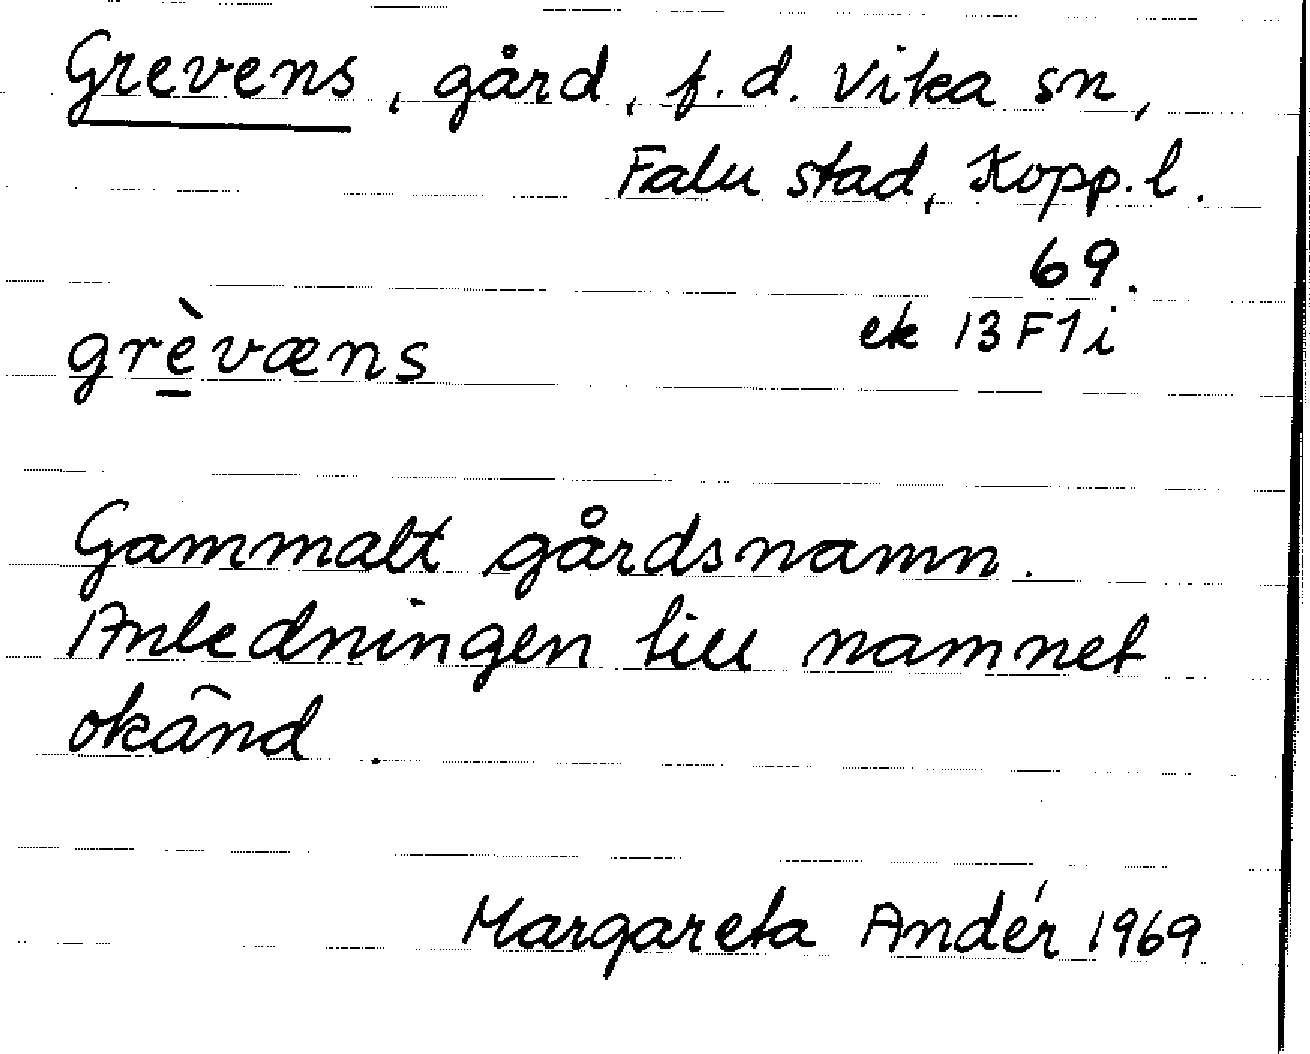 Grevens, gård, f.d. Vika sn,
Falu stad, Kopp.l.
69.
ek 13F1i
grè̱væns
Gammalt gårdsnamn.
Anledningen till namnet
okänd.
Margareta Andér 1969